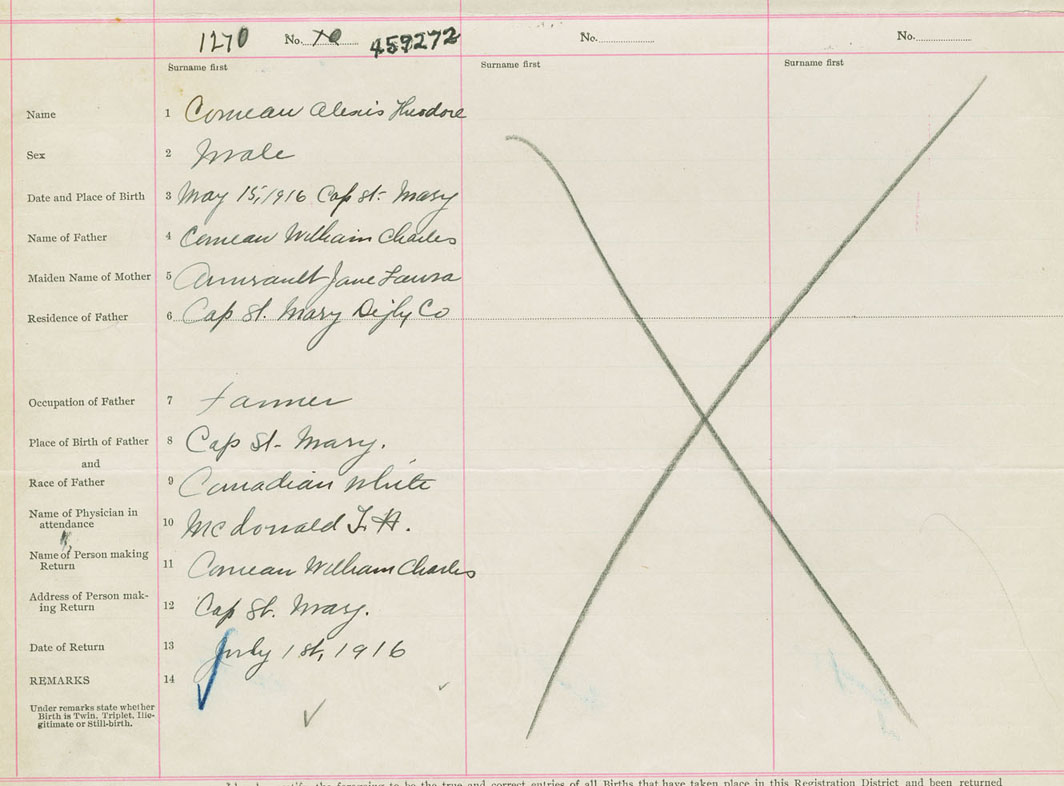 1270 No. 70 459272 No. No.
Surname first Surname first Surname first
Name 1 Comeau Alexis Theodore
Sex 2 Male
Date and Place of Birth 3 May 15, 1916 Cap St. Mary
Name of Father 4 Comeau William Charles
Maiden Name of Mother 5 Amirault Jane Laura
Residence of Father 6 Cap St. Mary Digby Co
Occupation of Father 7 Farmer
Place of Birth of Father 8 Cap St. Mary.
and
Race of Father 9 Canadian White
Name of Physician in
attendance 10 McDonald
Name of Person making
Return 11 Comeau William Charles
Address of Person mak-
ing Return 12 Cap St. Mary.
Date of Return 13 July 1st, 1916
REMARKS 14
Under remarks state whether
Birth is Twin, Triplet, Ille-
gitimate or Still-birth.
the foregoing to be the true and correct entries of all Births that have taken place in this Registration District and been returned